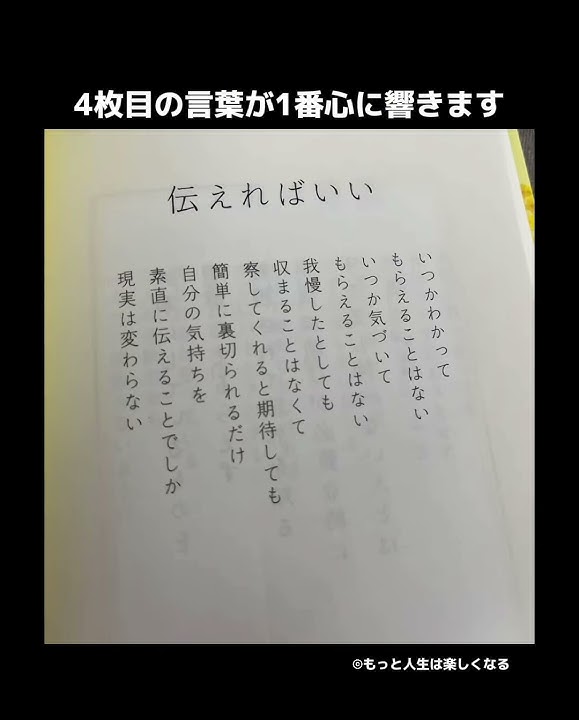 4枚目の言葉が1番心に響きます
伝えればいい
いつかわかって
もらえることはない
いつか気づいて
もらえることはない
我慢したとしても
収まることはなくて
察してくれると期待しても
簡単に裏切られるだけ
自分の気持ちを
素直に伝えることでしか
現実は変わらない
©もっと人生は楽しくなる